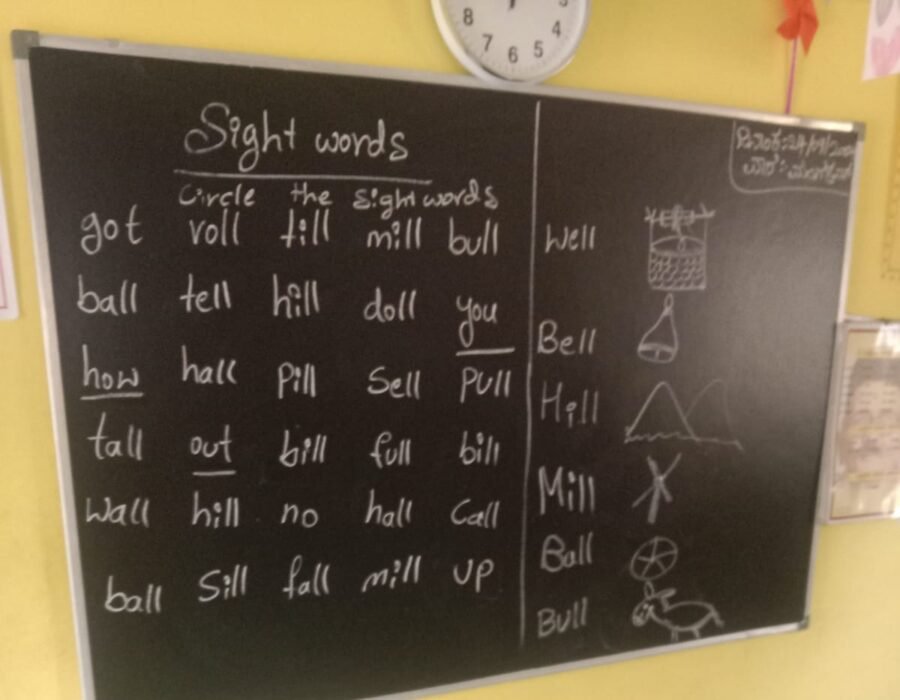 8 7 6 5 4
Sight words
Circle the Sight words
got roll till mill bull
ball tell hill doll you
how hall Pill Sell PUll
tall out bill full bill
Wall hill no hall Call
ball Sill fall mill UP
Well
Bell
Hill
Mill
Ball
Bull
ದಿನಾಂಕ: